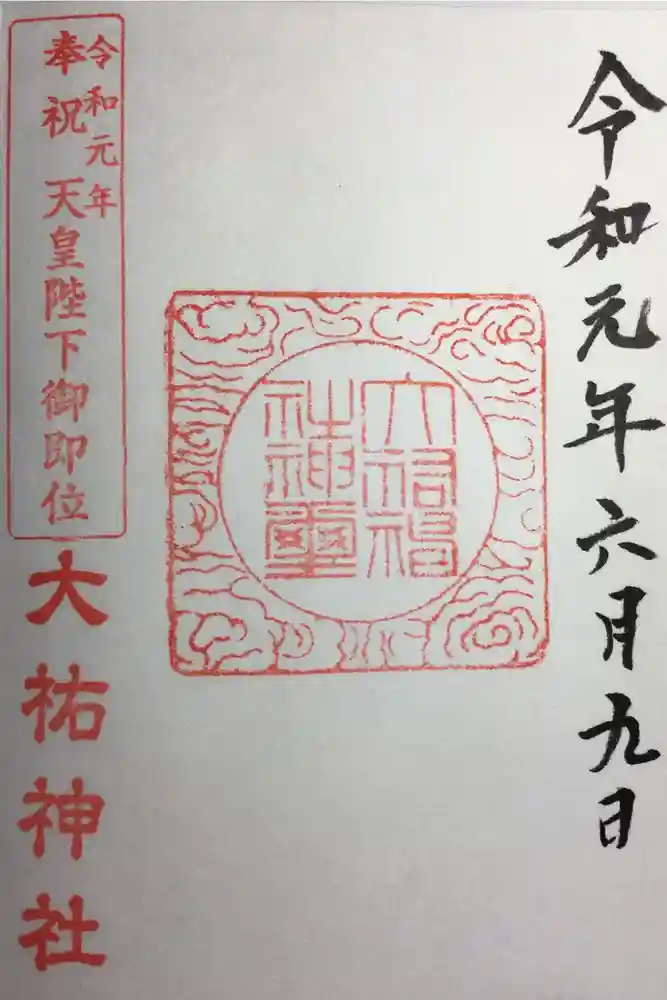 令和元年六月九日
令和元年
奉祝 天皇陛下御即位
大祐神社